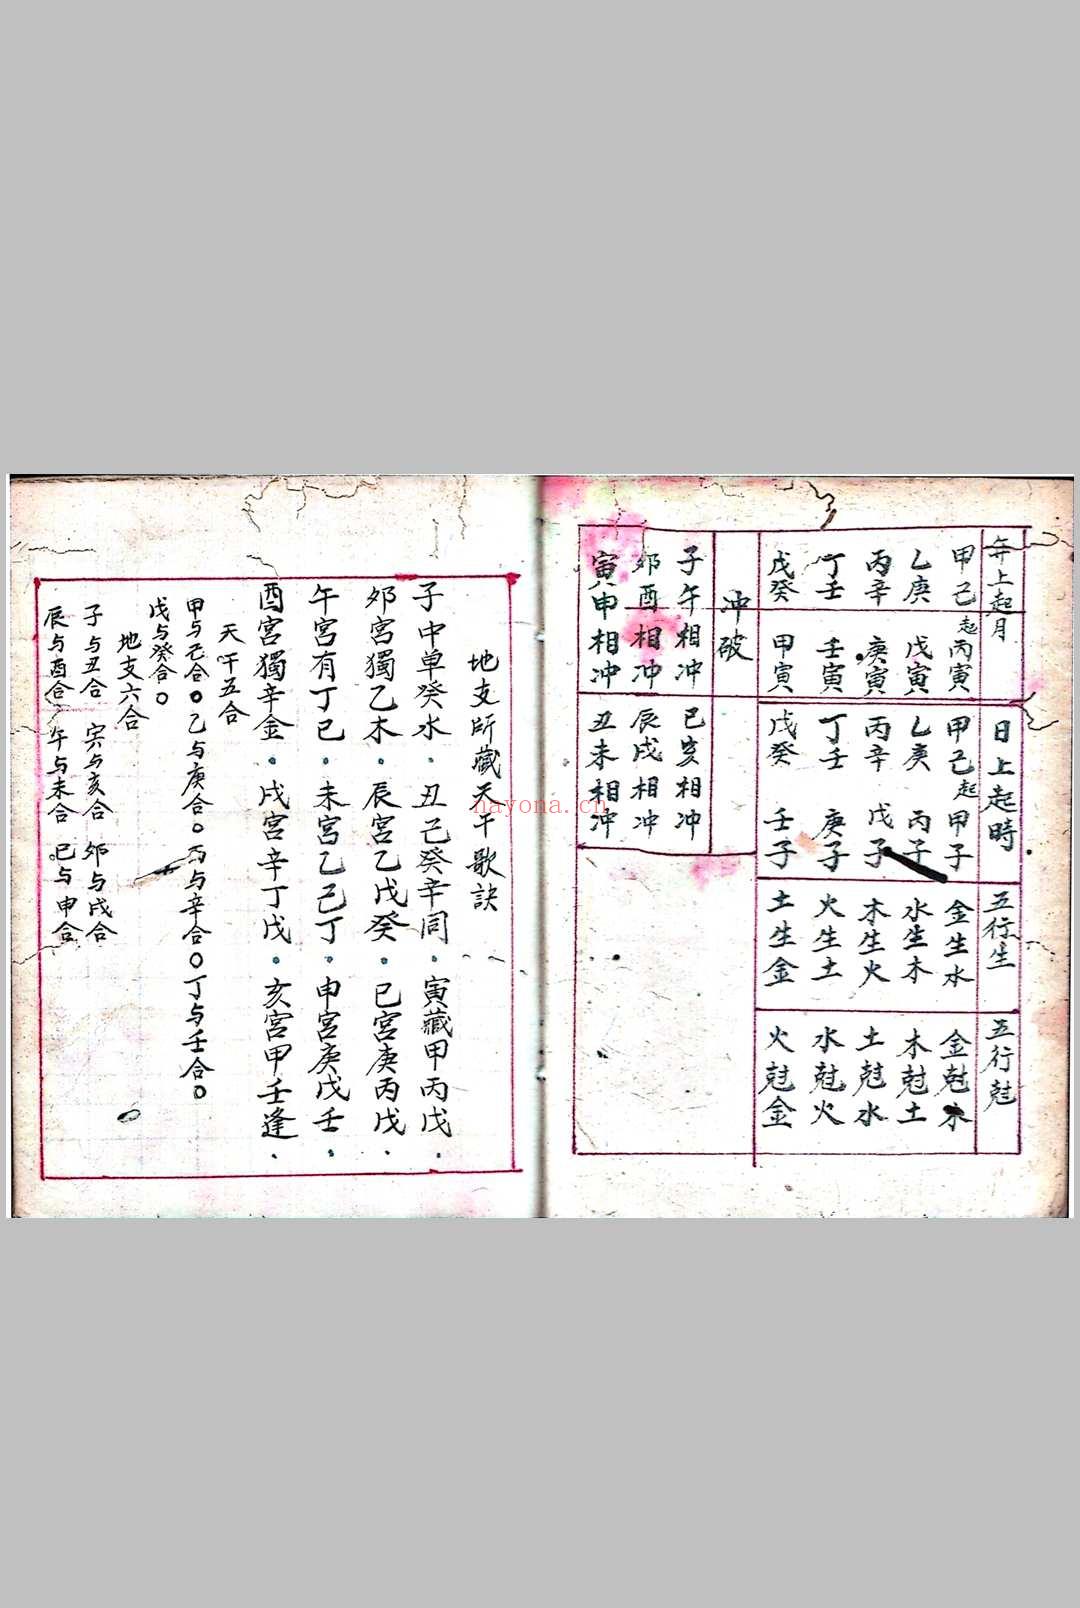 年上起月
日上起時
五行生
五行尅
甲己起丙寅
甲己起甲子
金生水
金尅木
乙庚 戊寅
乙庚 丙子
水生木
木尅土
丙辛 庚寅
丙辛 戊子
木生火
土尅水
丁壬 壬寅
丁壬 庚子
火生土
水尅火
戊癸 甲寅
戊癸 壬子
土生金
火尅金
冲破
子午相冲 巳亥相冲
卯酉相冲 辰戌相冲
寅申相冲 丑未相冲
地支所藏天干歌訣
子中单癸水．丑己癸辛同．寅藏甲丙戊．
卯宮獨乙木．辰宮乙戊癸．巳宮庚丙戊．
午宮有丁己．未宮乙己丁．申宮庚戊壬．
酉宮獨辛金．戌宮辛丁戊．亥宮甲壬逢．
天干五合
甲与己合○乙与庚合○丙与辛合○丁与壬合○
戊与癸合○
地支六合
子与丑合 寅与亥合 卯与戌合
辰与酉合 午与未合 巳与申合
nayona.cn